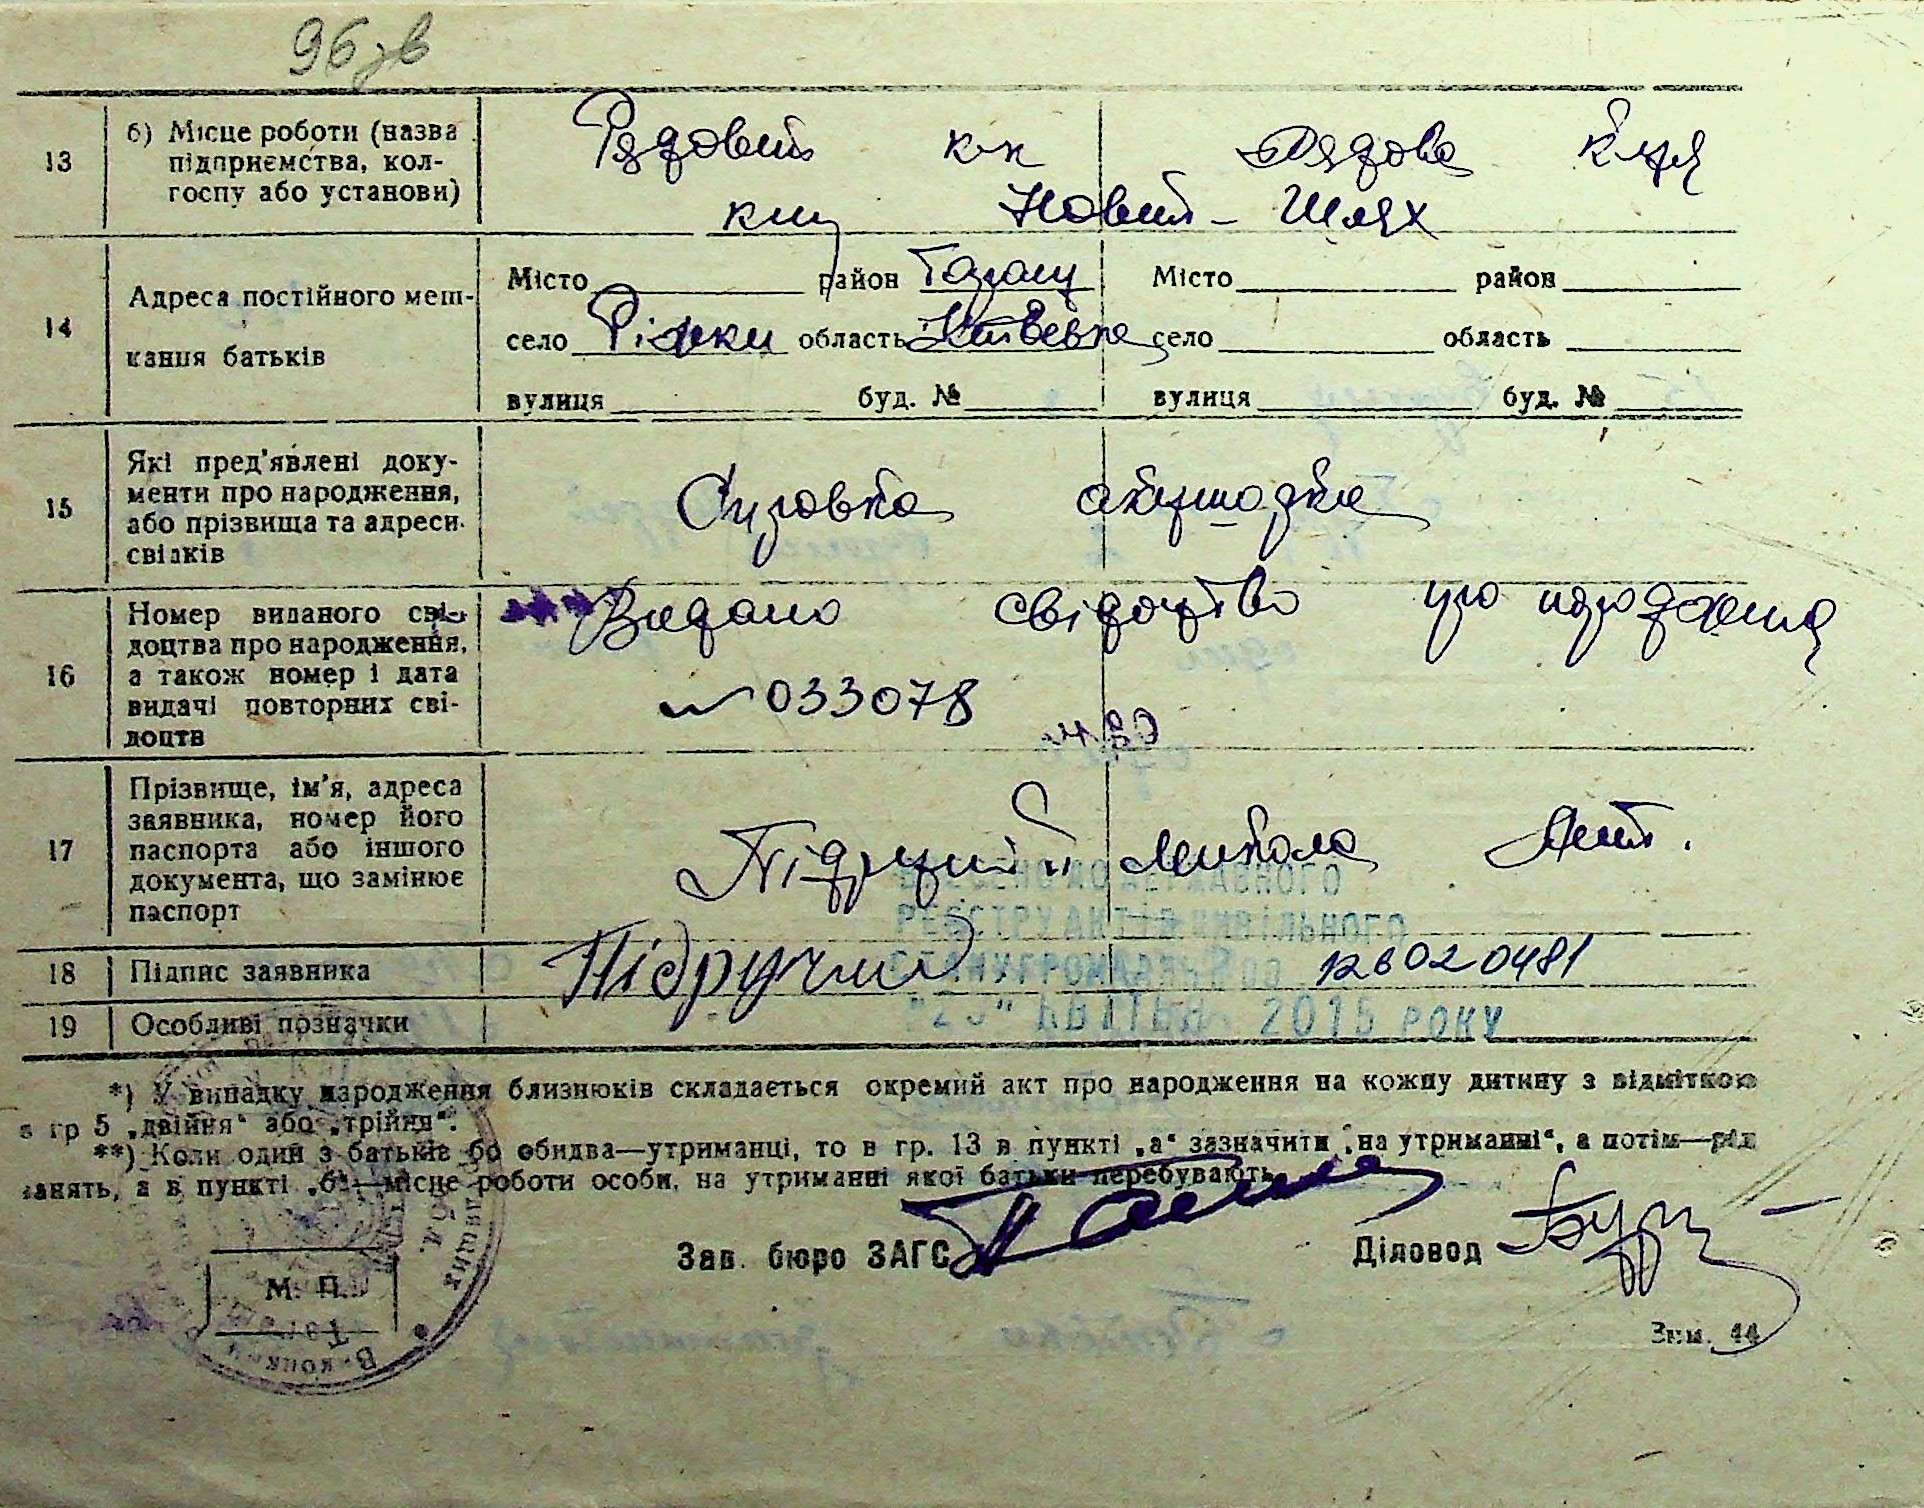 96 зв
13 б) Місце роботи (назва підприємства, колгоспу або установи)
Рядовий к-к Рядова к-ця
Новий-Шлях
14 Адреса постійного меш-
кання батьків
Місто район Таращ Місто район
село Ріжки область Київська село область
вулиця буд. № вулиця буд. №
15 Які пред'явлені доку-
менти про народження,
або прізвища та адреси
свідків
Справка акушорки
16 Номер виданого сві-
доцтва про народження,
а також номер і дата
видачі повторних сві-
доцтв
Видано свідоцтво про народження
№ 033078
17 Прізвище, ім'я, адреса
заявника, номер його
паспорта або іншого
документа, що замінює
паспорт
Підручний Микола Ант.
ВНЕСЕНО ДО ДЕРЖАВНОГО
РЕЄСТРУ АКТІВ ЦИВІЛЬНОГО
18 Підпис заявника
Підручний
СТАНУ ГРОМАДЯН ЗА
00120020481
19 Особливі позначки
КВІТНЯ 2015 РОКУ
*) У випадку народження близнюків складається окремий акт про народження на кожну дитину з відміткою
в гр 5 „двійня“ або „трійня“.
**) Коли один з батьків бо обидва—утриманці, то в гр. 13 в пункті „а“ зазначити „на утриманні“, а потім—рід
занять, а в пункті „б“—місце роботи особи, на утриманні якої батьки перебувають.
Зав. бюро ЗАГС Діловод
М. П.
Зам. 44